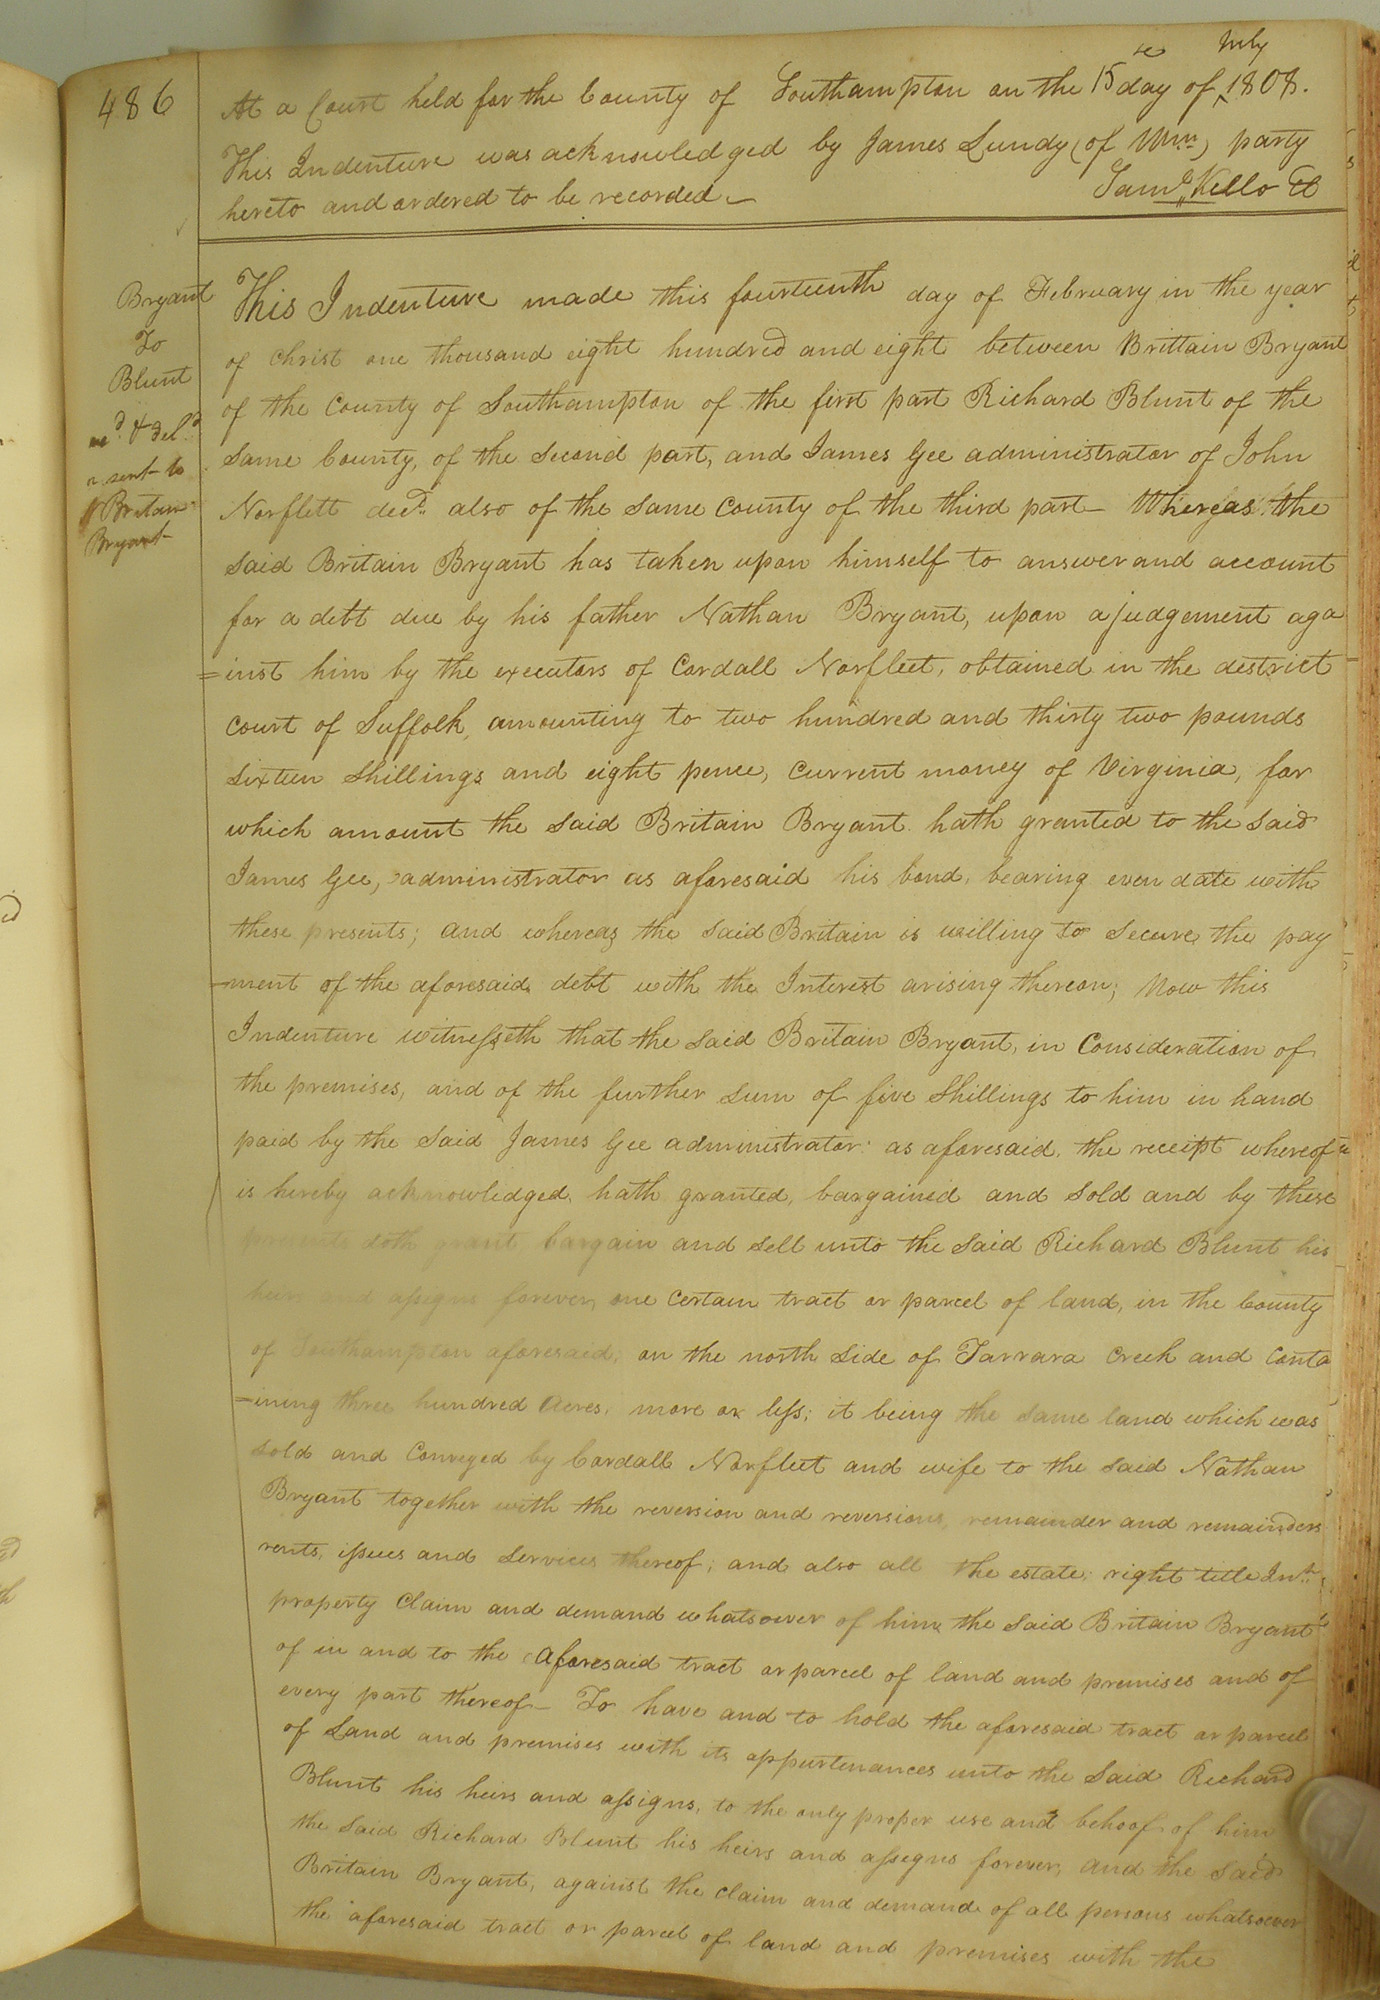 486
July
At a Court held for the County of Southampton on the 15th day of 1808.
This Indenture was acknowledged by James Lundy (of Wm) party
hereto and ordered to be recorded.
Saml. Kello Cl
Bryant
To
Blunt
& Del.d
sent to
Britan
Bryant
This Indenture made this fourteenth day of February in the year
of christ one thousand eight hundred and eight between Brittain Bryant
of the County of Southampton of the first part Richard Blunt of the
same County, of the second part, and James Gee administrator of John
Norflett decd. also of the same County of the third part – Whereas the
said Britain Bryant has taken upon himself to answer and account
for a debt due by his father Nathan Bryant, upon a judgement aga
=inst him by the executors of Cordall Norfleet, obtained in the destrict
court of Suffolk, amounting to two hundred and thirty two pounds
sixteen shillings and eight pence, current money of Virginia, for
which amount the said Britain Bryant hath granted to the said
James Gee, administrator as aforesaid his bond, bearing even date with
these presents; and whereas the said Britain is willing to secure the pay
=ment of the aforesaid debt with the Interest arising thereon; Now this
Indenture witnesseth that the said Britain Bryant, in Consideration of
the premises, and of the further sum of five shillings to him in hand
paid by the said James Gee administrator as aforesaid, the receipt whereof
is hereby acknowledged, hath granted, bargained and sold and by these
presents doth grant bargain and sell unto the said Richard Blunt his
heirs and assigns forever, one certain tract or parcel of land, in the County
of Southampton aforesaid, on the north side of Tarrara Creek and conta
=ining three hundred Acres, more or less; it being the same land which was
sold and conveyed by Cordall Norfleet and wife to the said Nathan
Bryant together with the reversion and reversions, remainder and remainders
rents, issues and services thereof; and also all the estate, right title Int.
property claim and demand whatsoever of him the said Britain Bryant
of in and to the aforesaid tract or parcel of land and premises and of
every part thereof – To have and to hold the aforesaid tract or parcel
of Land and premises with its appurtenances unto the said Richard
Blunt his heirs and assigns, to the only proper use and behoof of him
the said Richard Blunt his heirs and assigns forever, and the said
Britain Bryant, against the claim and demand of all persons whatsoever
the aforesaid tract or parcel of land and premises with the